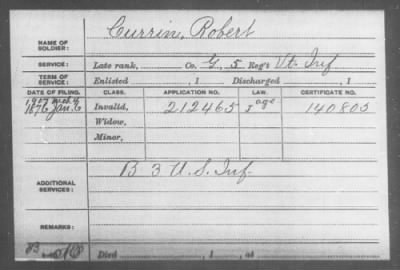 NAME OF SOLDIER: Currin, Robert
SERVICE: Late rank, Co. G, 5 Reg't Vt. Inf
TERM OF SERVICE: Enlisted , 1 Discharged , 1
DATE OF FILING. CLASS. APPLICATION NO. LAW. CERTIFICATE NO.
1907 Mch 4 age
1876 Jan. 6 Invalid, 212465 140805
Widow,
Minor,
ADDITIONAL SERVICES: B 3 U.S. Inf.
REMARKS:
Died , 1 , at